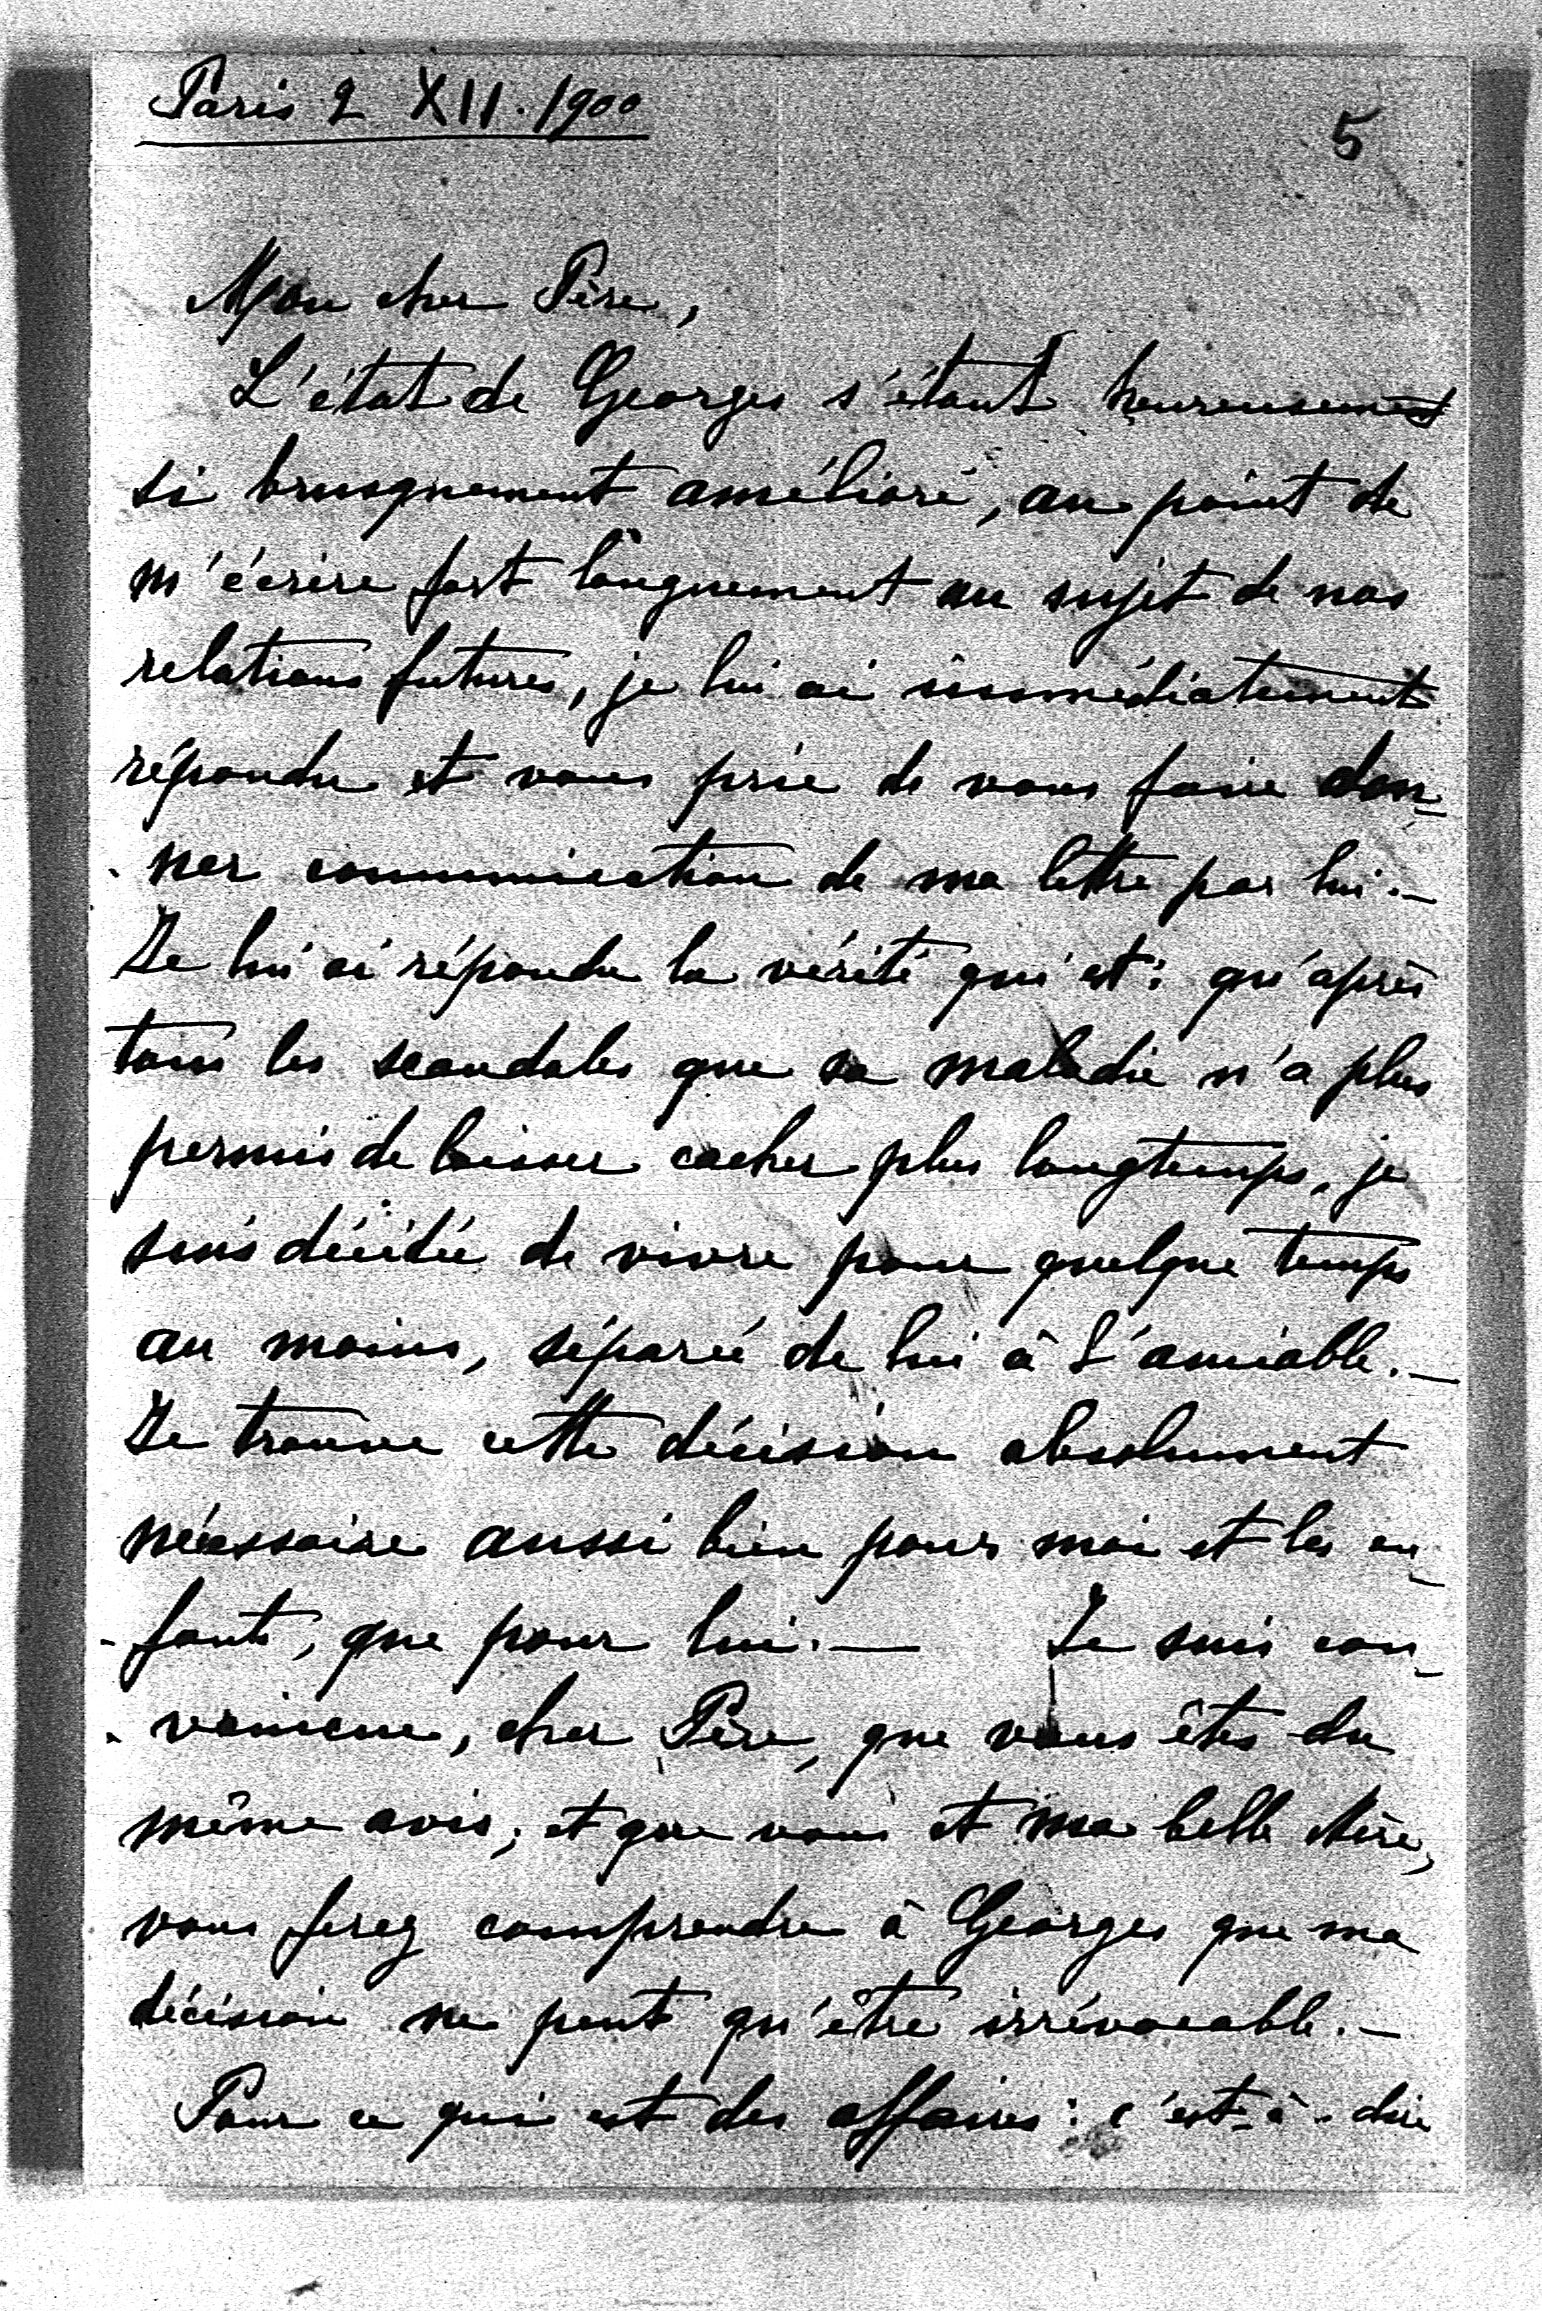 Paris 2 XII. 1900
5
Mon cher Père,
L'état de Georges s'étant heureusement
si brusquement amélioré, au point de
m'écrire fort longuement au sujet de nos
relations futures, je lui ai immédiatement
répondu et vous prie de vous faire don-
-ner communication de ma lettre par lui.-
Je lui ai répondu la vérité qui est: qu'après
tous les scandales que sa maladie n'a plus
permis de laisser cacher plus longtemps, je
suis décidée de vivre pour quelque temps
au moins, séparée de lui à l'amiable.-
Je trouve cette décision absolument
nécessaire aussi bien pour moi et les en-
-fants, que pour lui.— Je suis con-
-vaincue, cher Père, que vous êtes du
même avis, et que vous et ma belle Mère,
vous ferez comprendre à Georges que ma
décision ne peut qu'être irrévocable.-
Pour ce qui est des affaires: c'est-à-dire